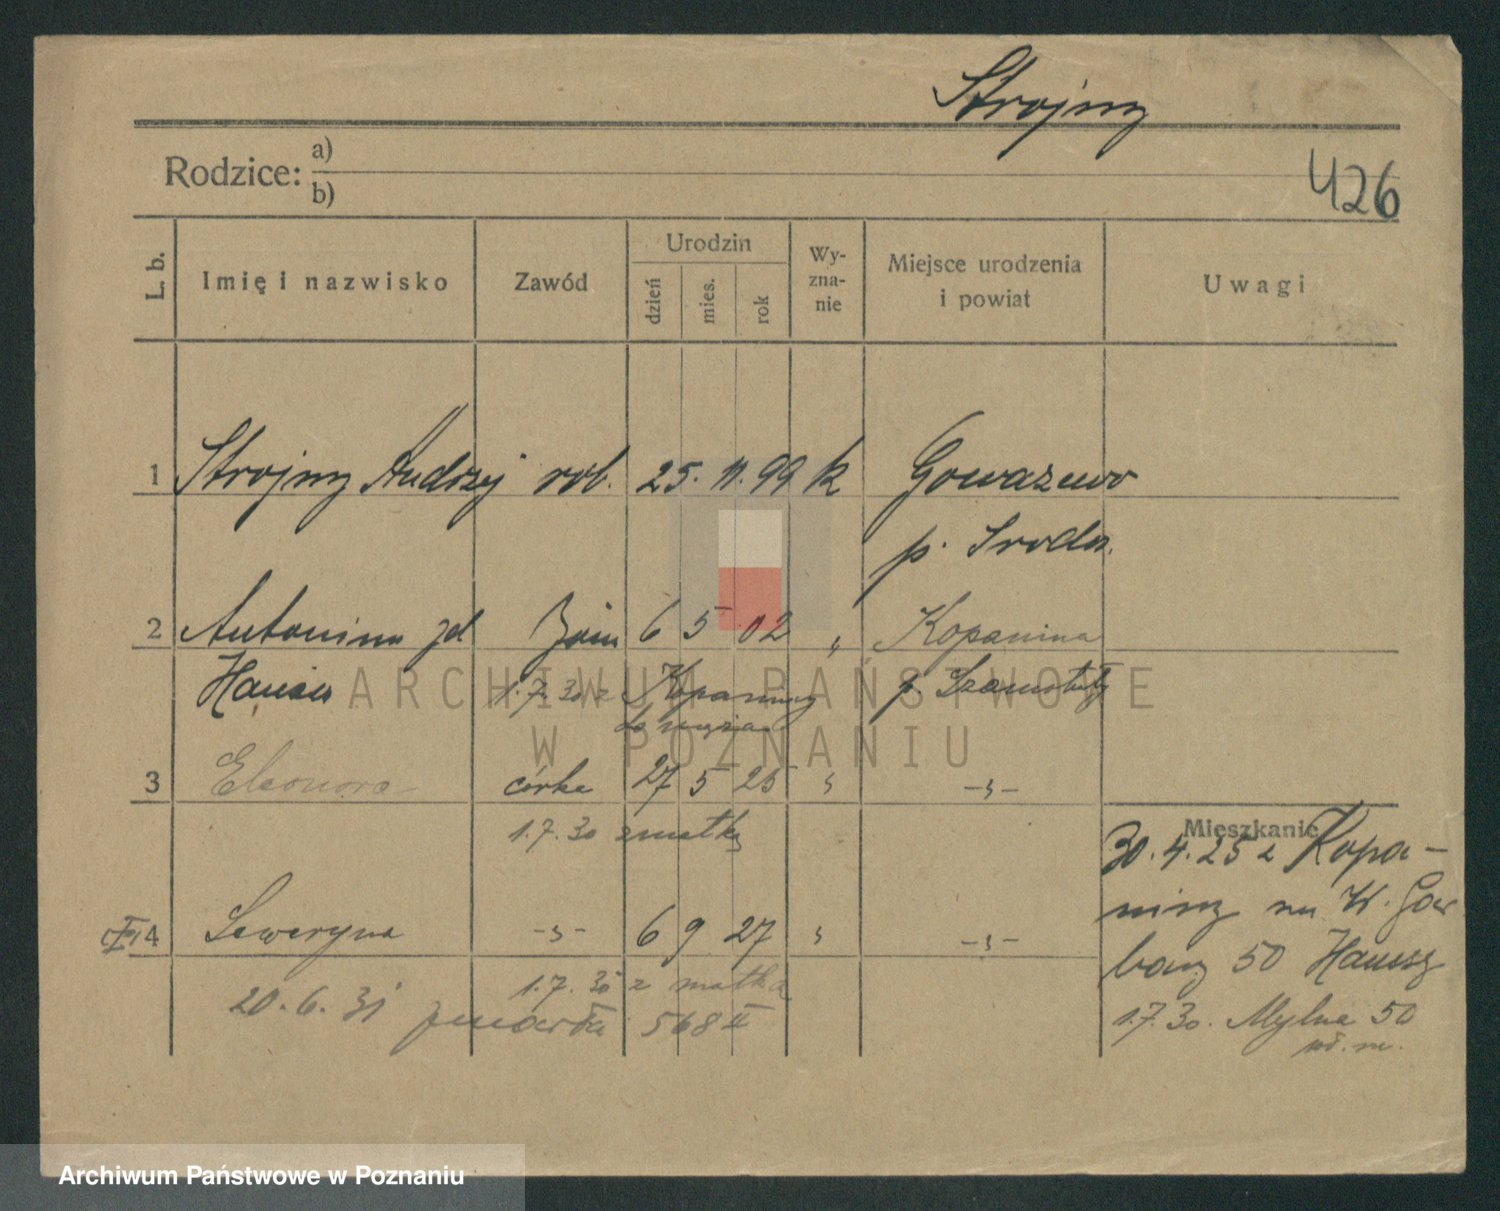 Strojny
Rodzice: a)
b)
426
L. b. Imię i nazwisko Zawód Urodzin dzień mies. rok Wy-zna-nie Miejsce urodzenia i powiat Uwagi
1 Strojny Andrzej rob. 25. 11. 99 k Gowarzewo
p. Środa.
2 Antonina żona 6 5 02 " Kopanina
1.7.30 z Kopaniny p. Szamotuły
do męża
3 Eleonora córka 27 5 25 " -"-
1.7.30 z matką
Mieszkanie
30.4.25 z Kopa-
niny
4 Seweryna -"- 6 9 27 " -"-
50
1.7.30 z matką
20.6.31 zmarła 568 II
1.7.30. Mylna 50
ARCHIWUM PAŃSTWOWE
W POZNANIU
Archiwum Państwowe w Poznaniu